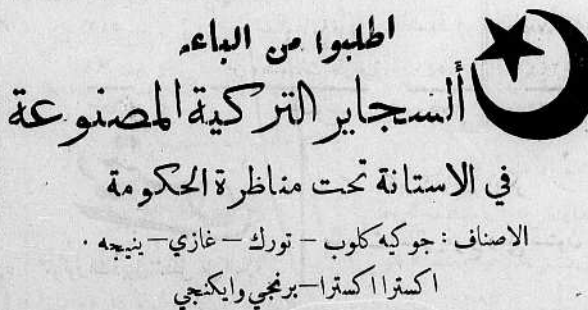 اطلبوا من الباعه
ألسجاير التركية المصنوعة
في الاستانة تحت مناظرة الحكومة
الاصناف : جوكيه كلوب – تورك – غازي – ينيجه .
اكسترا اكسترا – برنجي وايكنجي